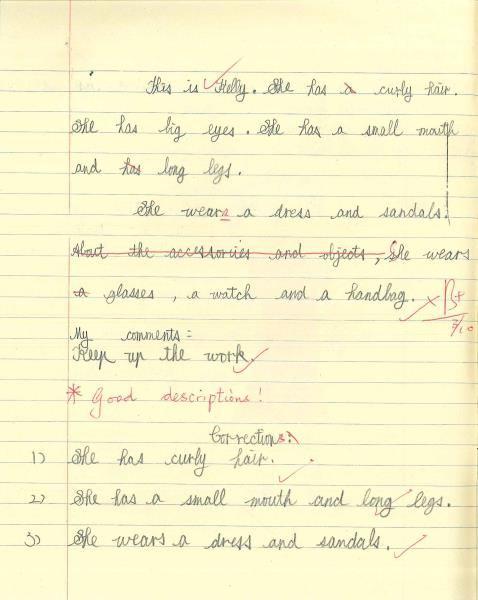 This is Kelly. She has a curly hair.
She has big eyes. She has a small mouth
and has long legs.
She wears a dress and sandals.
About the accessories and objects, She wears
a glasses, a watch and a handbag.
B+
7/10
My comments:
Keep up the work.
* Good descriptions!
Corrections:
1) She has curly hair.
2) She has a small mouth and long legs.
3) She wears a dress and sandals.